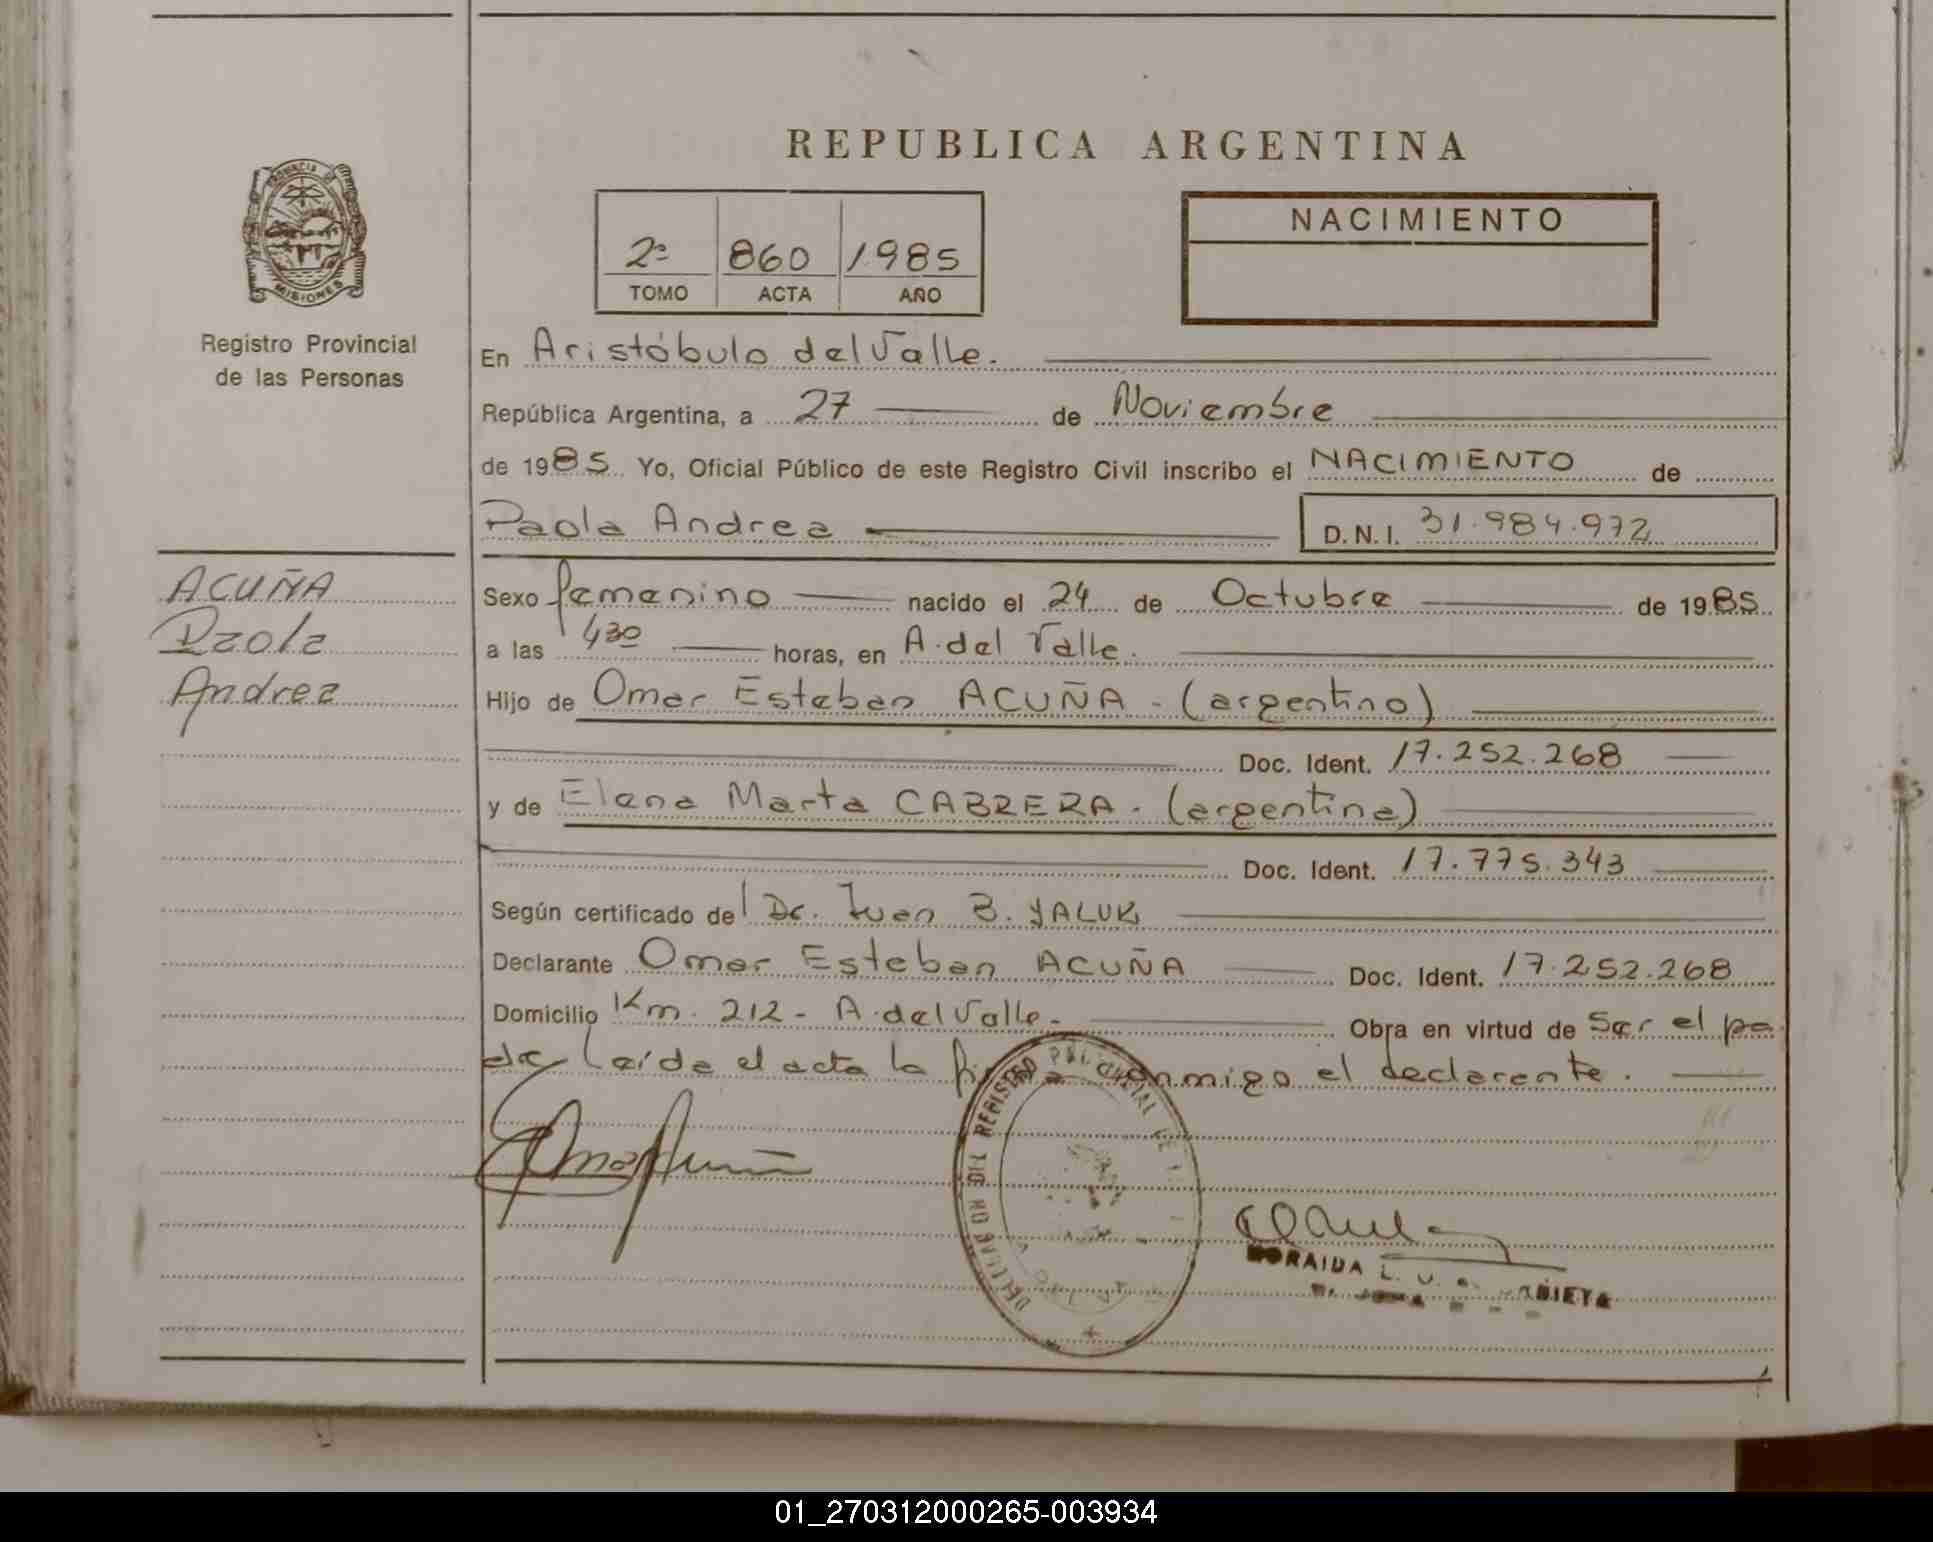 REPUBLICA ARGENTINA
PROVINCIA DE
MISIONES
Registro Provincial
de las Personas
2ª 860 1985
TOMO ACTA AÑO
NACIMIENTO
En Aristóbulo del Valle.
República Argentina, a 27 de Noviembre
de 1985 Yo, Oficial Público de este Registro Civil inscribo el NACIMIENTO de
Paola Andrea D.N.I. 31.984.972
ACUÑA
Paola
Andrea
Sexo femenino nacido el 24 de Octubre de 1985
a las 4 30 horas, en A. del Valle.
Hijo de Omar Esteban ACUÑA - (argentino)
Doc. Ident. 17.252.268
y de Elena Marta CABRERA - (argentina)
Doc. Ident. 17.775.343
Según certificado del Dr. Juan B. YALUK
Declarante Omar Esteban ACUÑA Doc. Ident. 17.252.268
Domicilio Km. 212 - A. del Valle - Obra en virtud de Ser el pa
dre Leída el acta la firma conmigo el declarante.
DEL REGISTRO PROVINCIAL DE
01_270312000265-003934